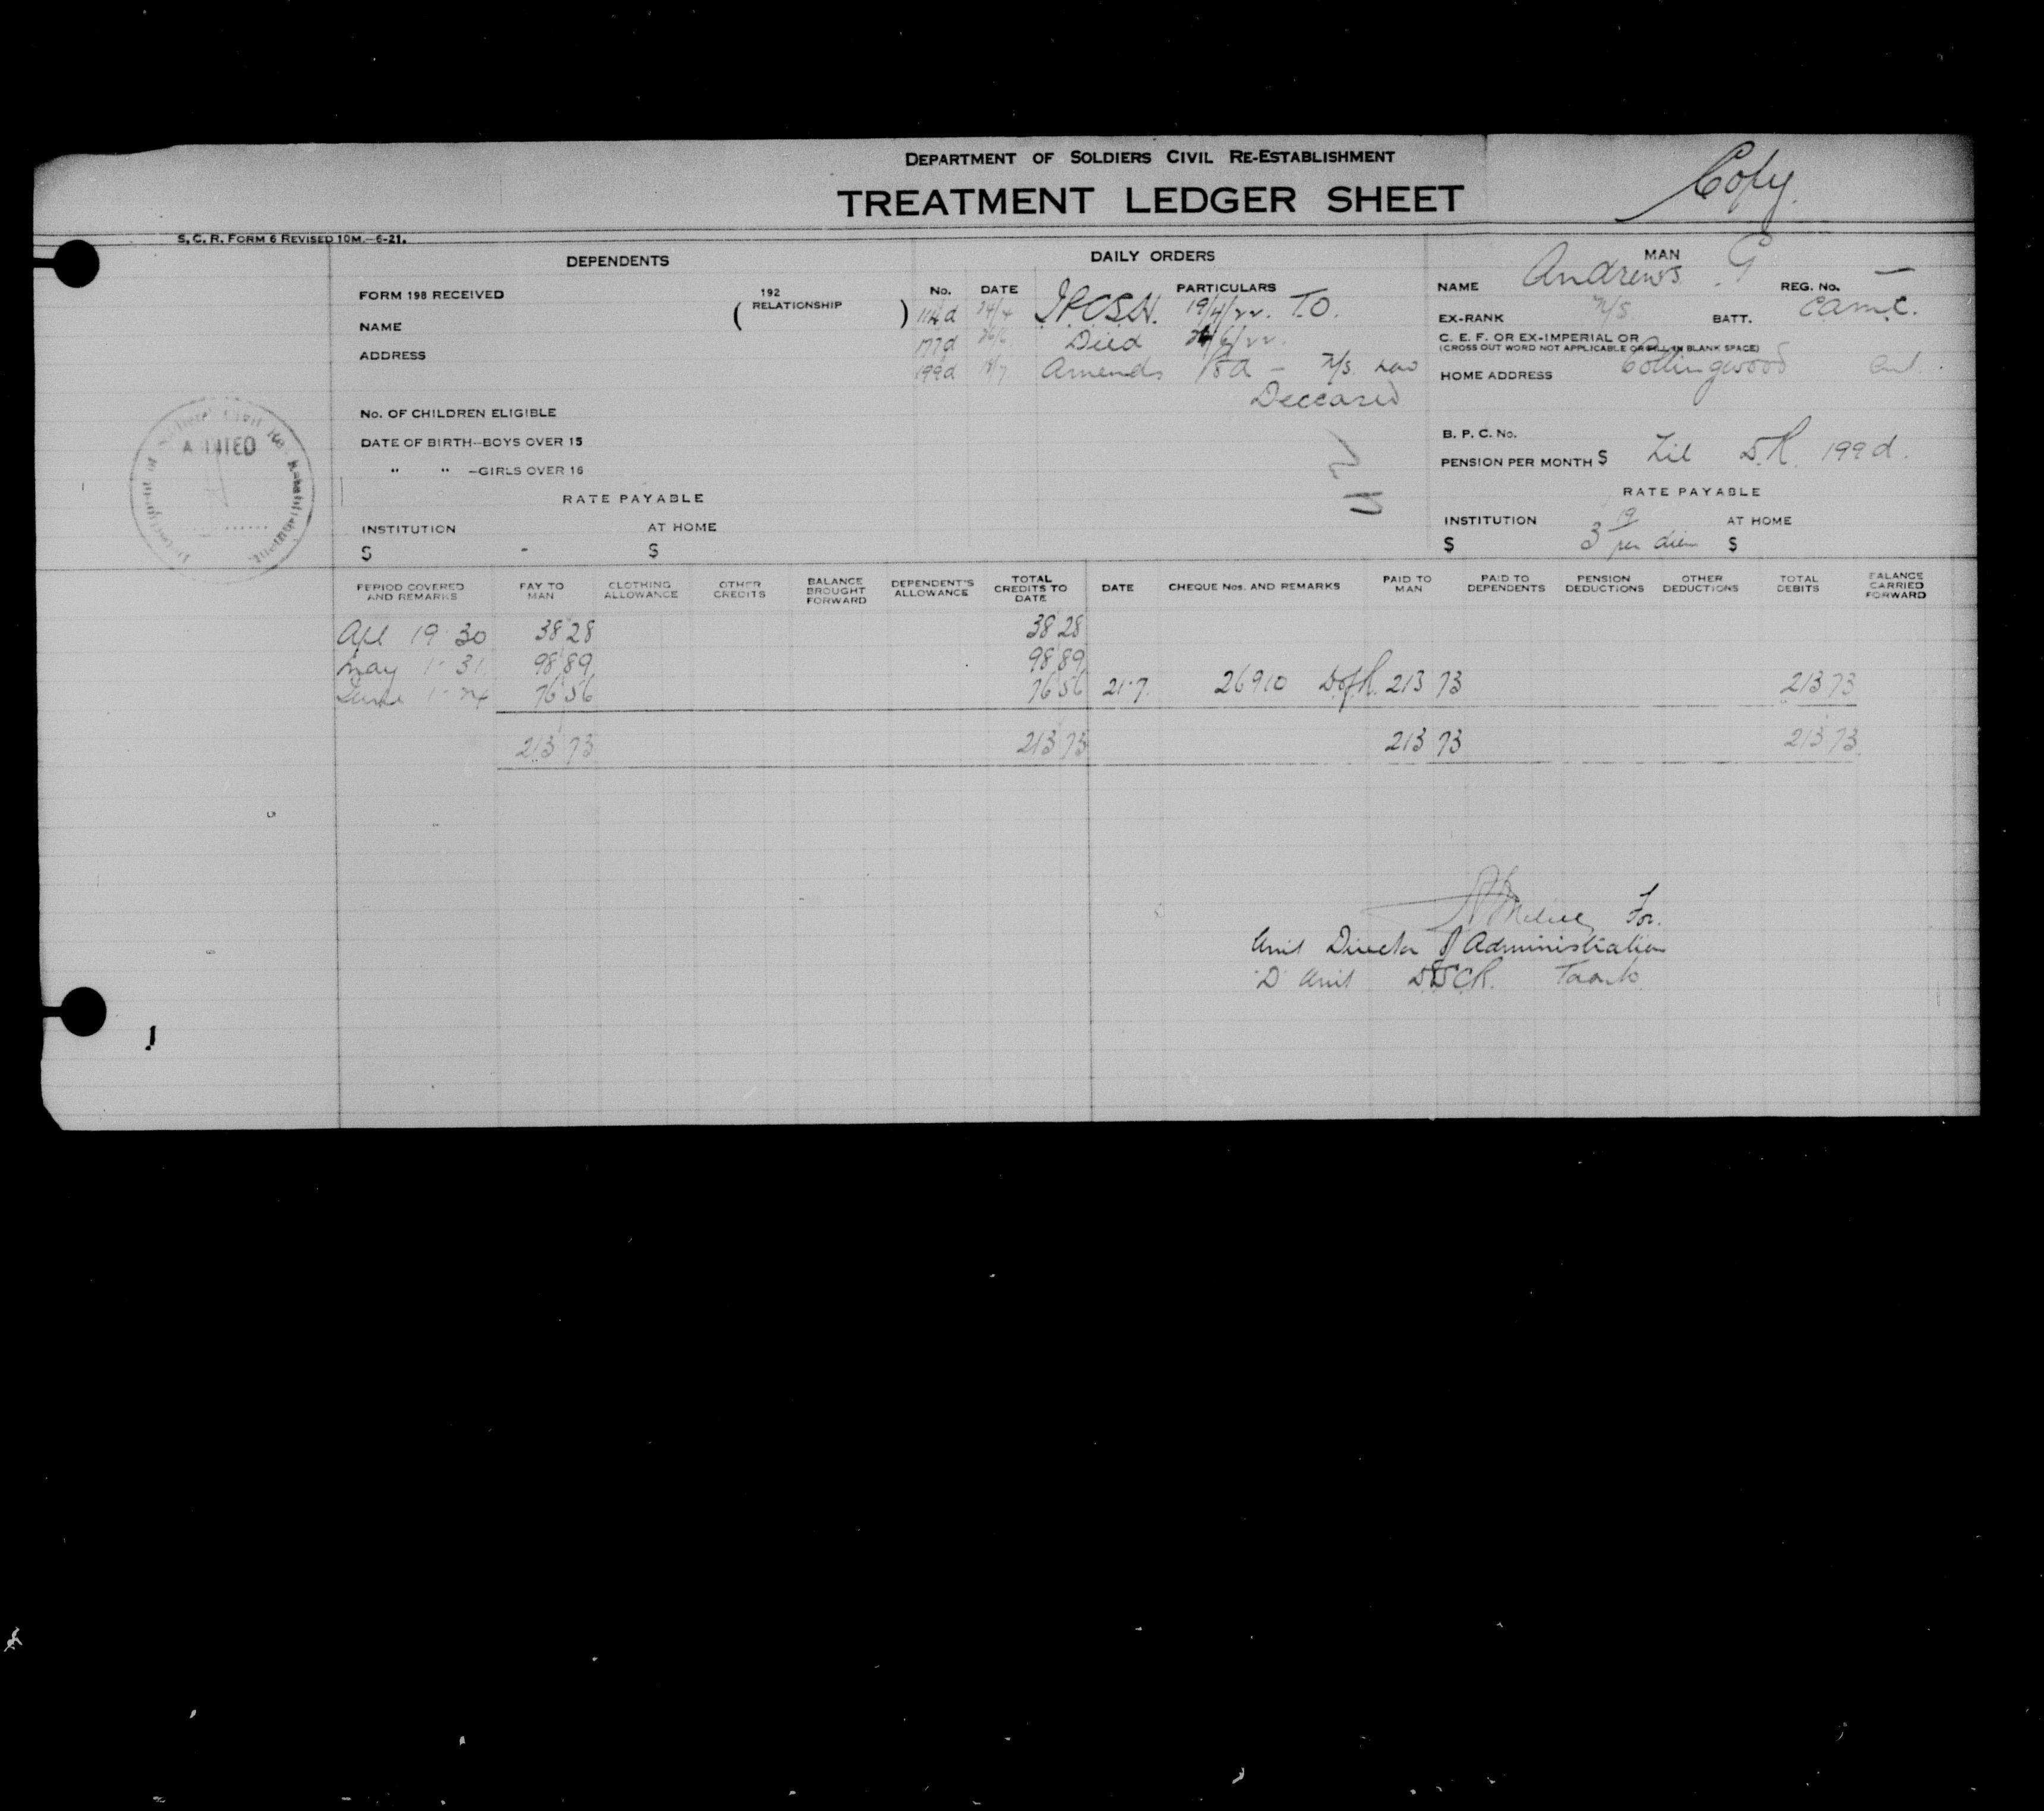 DEPARTMENT OF SOLDIERS CIVIL RE-ESTABLISHMENT
TREATMENT LEDGER SHEET
Copy.
S. C. R. FORM 6 REVISED 10M.—6-21.
DEPENDENTS
FORM 198 RECEIVED 192
NAME ( RELATIONSHIP )
ADDRESS
No. OF CHILDREN ELIGIBLE
DATE OF BIRTH—BOYS OVER 15
" " —GIRLS OVER 16
RATE PAYABLE
INSTITUTION AT HOME
$ - $
DAILY ORDERS
No. DATE PARTICULARS
114d 24/4 19/4/22. T.O.
177d 26/6 Died 24/6/22.
199d 18/7 Amends - N/S. now
Deceased
MAN
NAME Andrews. G REG. No. —
EX-RANK N/S. BATT. C.A.M.C.
C. E. F. OR EX-IMPERIAL OR
(CROSS OUT WORD NOT APPLICABLE OR FILL IN BLANK SPACE)
HOME ADDRESS Collingwood Ont.
B. P. C. No.
PENSION PER MONTH $ 199d.
RATE PAYABLE
INSTITUTION AT HOME
$ 3 19 per diem $
Department of Soldiers' Civil Re-Establishment.
PERIOD COVERED AND REMARKS PAY TO MAN CLOTHING ALLOWANCE OTHER CREDITS BALANCE BROUGHT FORWARD DEPENDENT'S ALLOWANCE TOTAL CREDITS TO DATE DATE CHEQUE Nos. AND REMARKS PAID TO MAN PAID TO DEPENDENTS PENSION DEDUCTIONS OTHER DEDUCTIONS TOTAL DEBITS BALANCE CARRIED FORWARD
Apl 19-30 38 28 38 28
May 1-31 98 89 98 89
June 1-24 76 56 76 56 21-7. 26910 D of R. 213 73 213 73
213 73 213 73 213 73 213 73
For.
Unit Director of Administration
"D" Unit DSCR. Toronto.